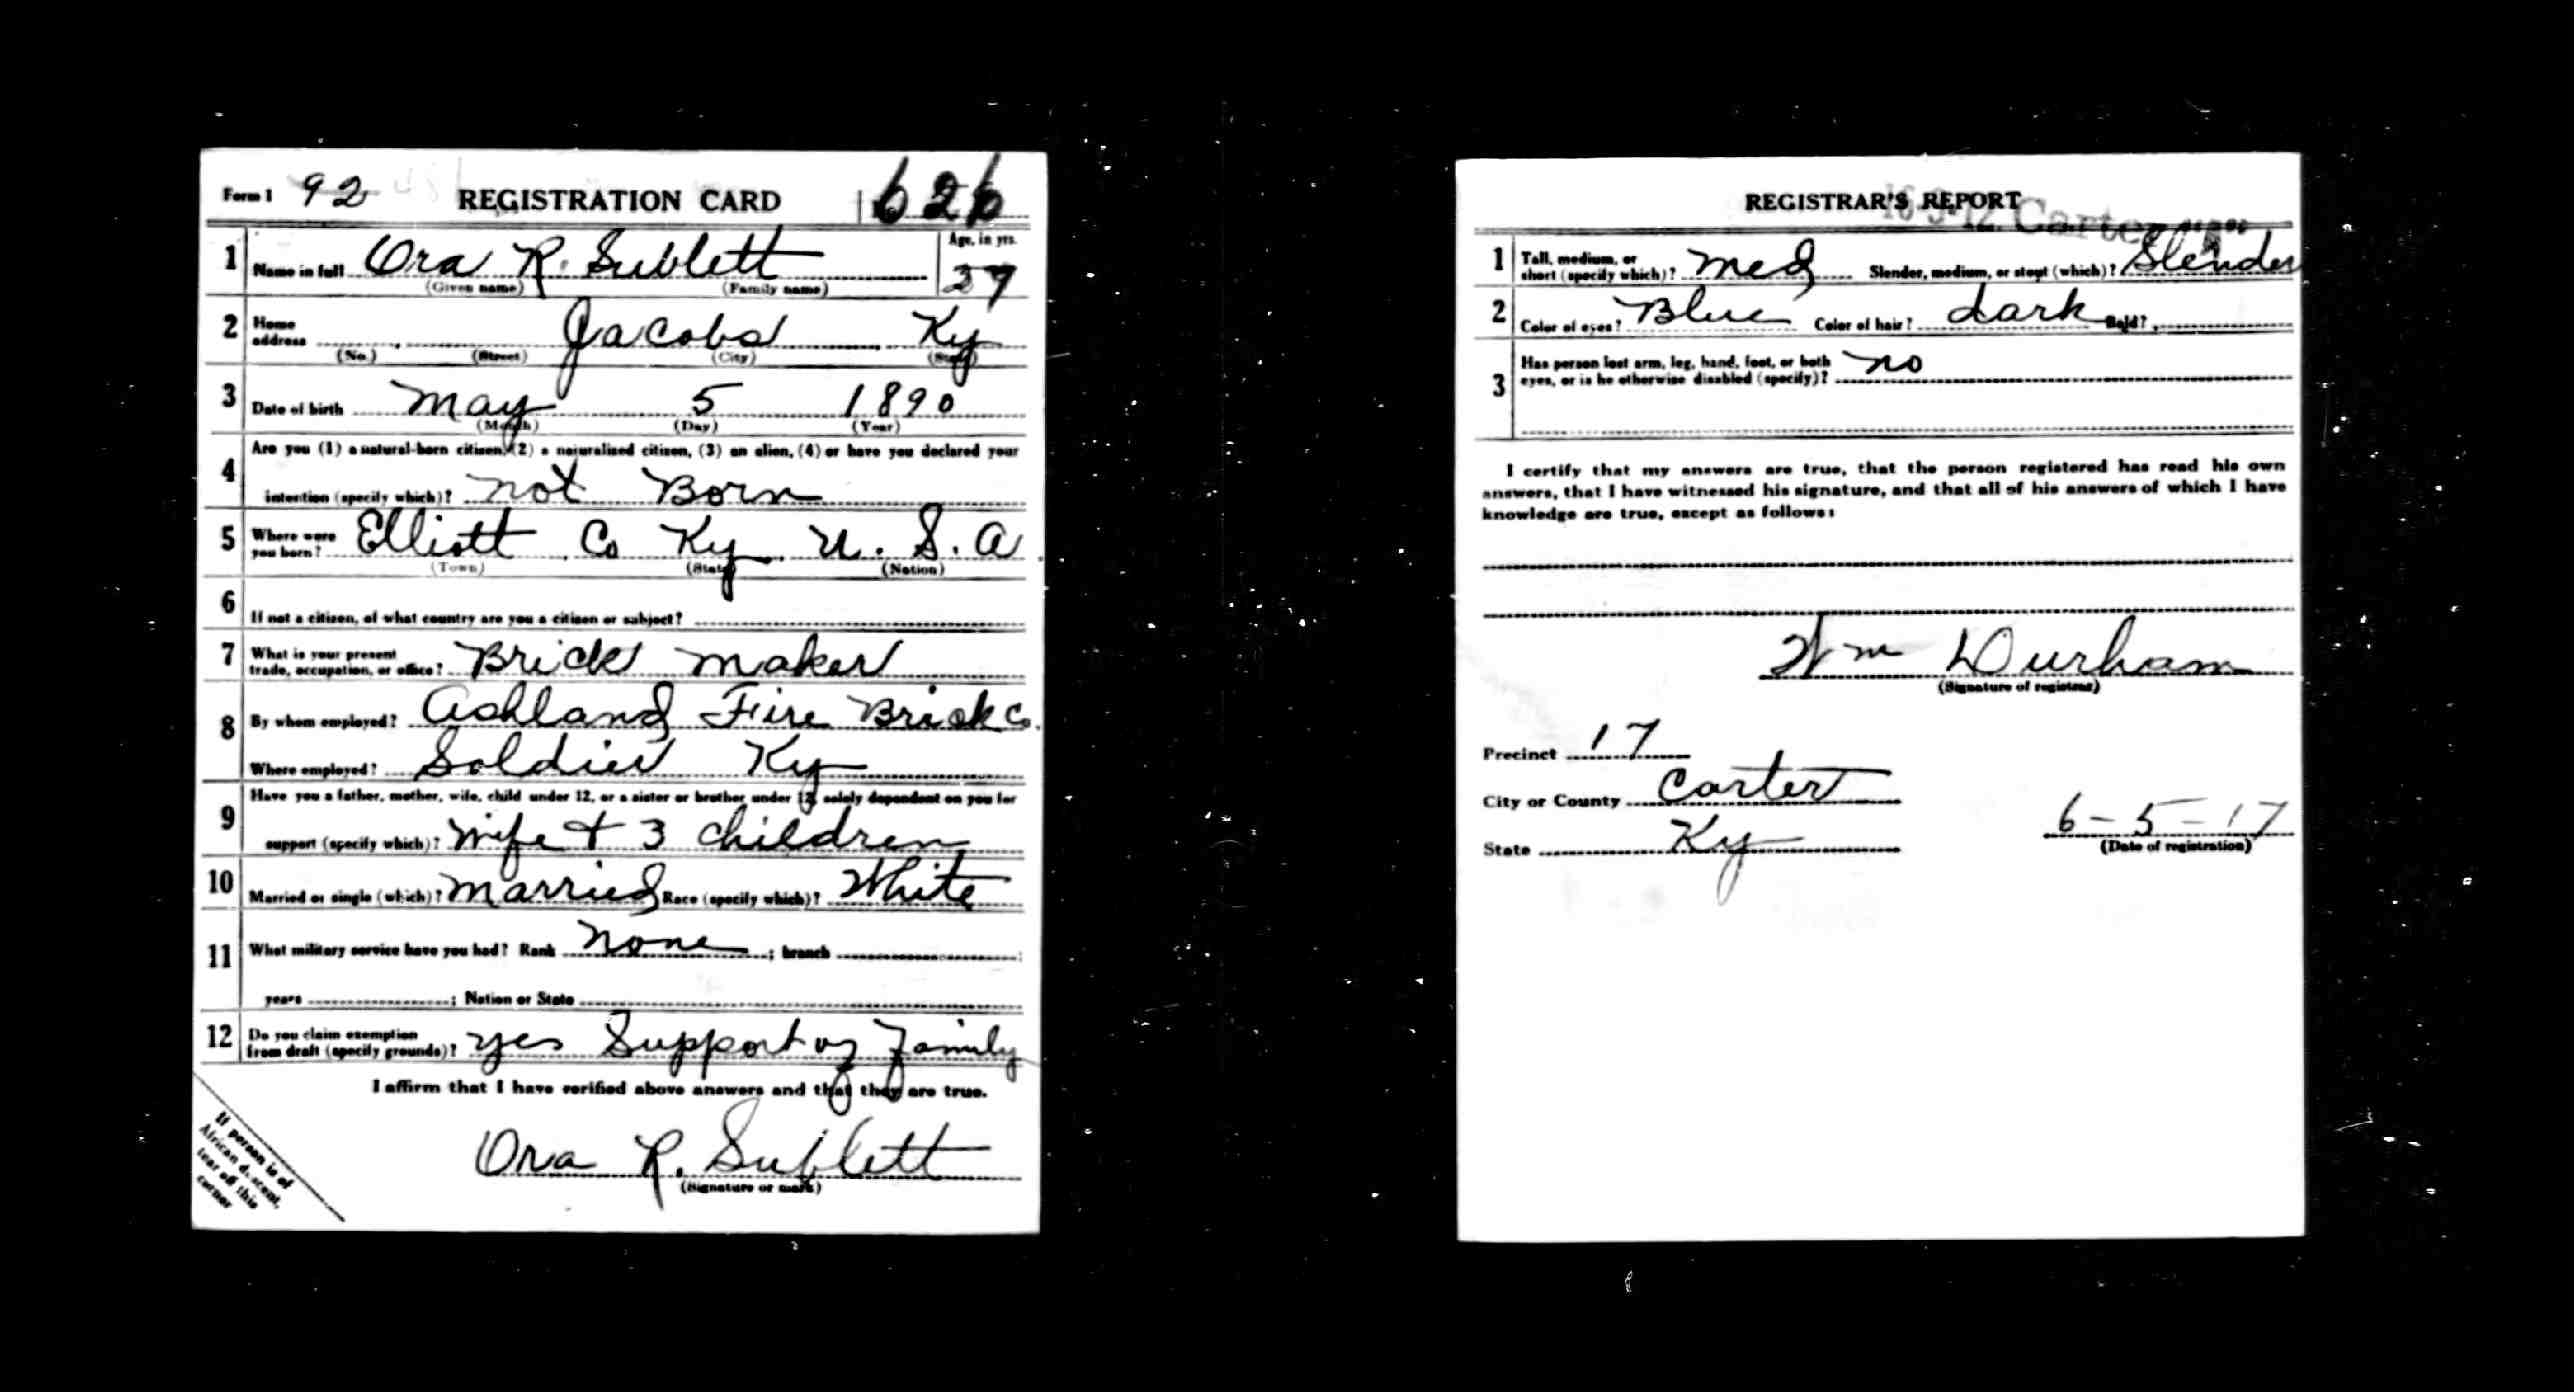 Form 1 92 REGISTRATION CARD 626
1 Name in full Ora R. Sublett Age, in yrs. 27
(Given name) (Family name)
2 Home address Jacobs Ky
(No.) (Street) (City) (State)
3 Date of birth May 5 1890
(Month) (Day) (Year)
4 Are you (1) a natural-born citizen, (2) a naturalized citizen, (3) an alien, (4) or have you declared your
intention (specify which)? not Born
5 Where were you born? Elliott Co Ky U. S. A
(Town) (State) (Nation)
6 If not a citizen, of what country are you a citizen or subject?
7 What is your present trade, occupation, or office? Brick maker
8 By whom employed? Ashland Fire Brick Co.
Where employed? Soldier Ky
9 Have you a father, mother, wife, child under 12, or a sister or brother under 12, solely dependent on you for
support (specify which)? Wife + 3 children
10 Married or single (which)? Married Race (specify which)? White
11 What military service have you had? Rank none ; branch ;
years ; Nation or State
12 Do you claim exemption from draft (specify grounds)? yes Support of Family
I affirm that I have verified above answers and that they are true.
Ora R. Sublett
(Signature or mark)
If person is of
African descent,
tear off this
corner
REGISTRAR'S REPORT
Carter
1 Tall, medium, or short (specify which)? Med Slender, medium, or stout (which)? Slender
2 Color of eyes? Blue Color of hair? dark Bald?
3 Has person lost arm, leg, hand, foot, or both eyes, or is he otherwise disabled (specify)? no
I certify that my answers are true, that the person registered has read his own
answers, that I have witnessed his signature, and that all of his answers of which I have
knowledge are true, except as follows:
Wm Durham
(Signature of registrar)
Precinct 17
City or County Carter
State Ky
6-5-17
(Date of registration)